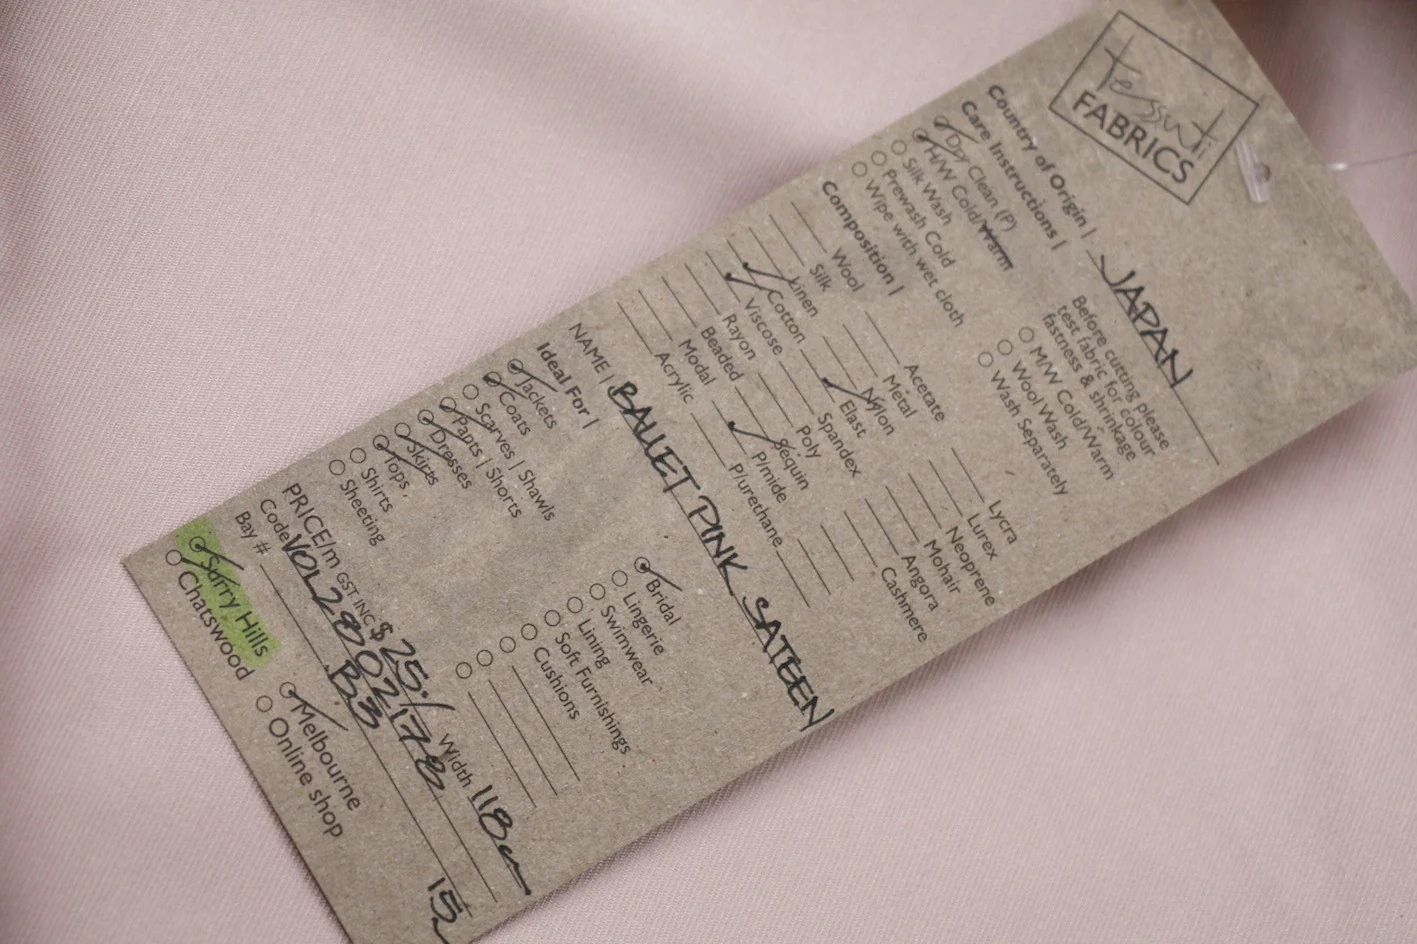 tessuti
FABRICS
Country of Origin | JAPAN
Care Instructions |
Before cutting please
test fabric for colour
fastness & shrinkage
Dry Clean (P)
H/W Cold/Warm
Silk Wash
Prewash Cold
Wipe with wet cloth
M/W Cold/Warm
Wool Wash
Wash Separately
Composition |
Wool
Silk
Linen
Cotton
Viscose
Rayon
Beaded
Modal
Acrylic
Acetate
Metal
Nylon
Elast
Spandex
Poly
Sequin
P/mide
P/urethane
Lycra
Lurex
Neoprene
Mohair
Angora
Cashmere
NAME | BALLET PINK SATEEN
Ideal For |
Jackets
Coats
Scarves | Shawls
Pants | Shorts
Dresses
Skirts
Tops
Shirts
Sheeting
Bridal
Lingerie
Swimwear
Lining
Soft Furnishings
Cushions
PRICE/m GST INC $25./ Width 118cm
Code VOL28002178
Bay # B3
Surry Hills
Chatswood
Melbourne
Online shop